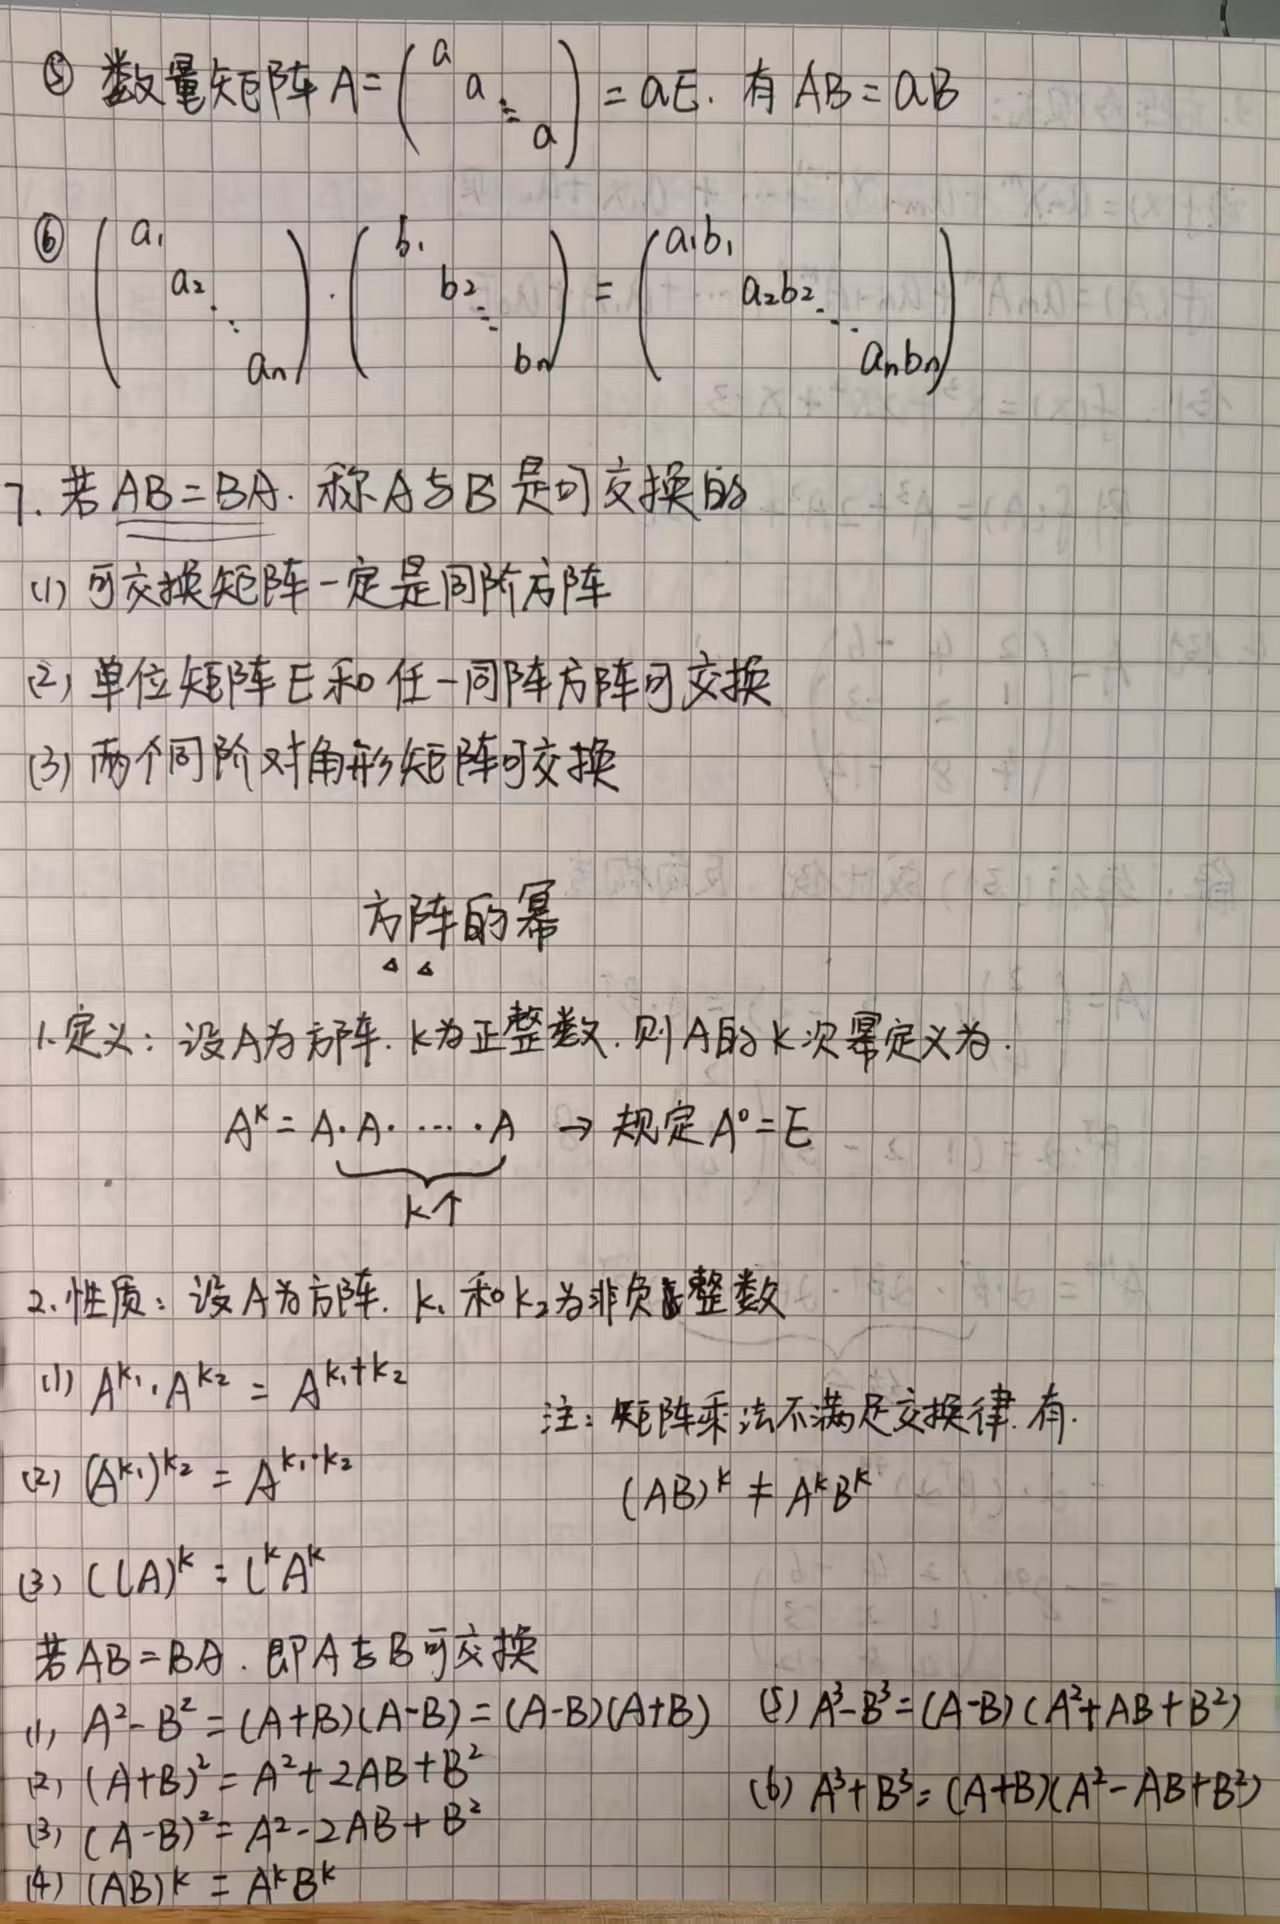 ⑤ 数量矩阵 A = ( a a ⋱ a ) = aE. 有 AB = aB
⑥ ( a₁ a₂ ⋱ aₙ ) · ( b₁ b₂ ⋱ bₙ ) = ( a₁b₁ a₂b₂ ⋱ aₙbₙ )
7. 若 AB = BA. 称 A 与 B 是可交换的
(1) 可交换矩阵一定是同阶方阵
(2) 单位矩阵 E 和任一同阵方阵可交换
(3) 两个同阶对角形矩阵可交换
方阵的幂
1. 定义: 设 A 为方阵. k 为正整数. 则 A 的 k 次幂定义为.
Aᵏ = A · A · ⋯ · A → 规定 A⁰ = E
k个
2. 性质: 设 A 为方阵. k₁ 和 k₂ 为非负整数
(1) A^{k₁} · A^{k₂} = A^{k₁+k₂}
注: 矩阵乘法不满足交换律. 有.
(2) (A^{k₁})^{k₂} = A^{k₁·k₂}
(AB)ᵏ ≠ AᵏBᵏ
(3) (lA)ᵏ = lᵏAᵏ
若 AB = BA. 即 A 与 B 可交换
(1) A² - B² = (A+B)(A-B) = (A-B)(A+B)
(2) (A+B)² = A² + 2AB + B²
(3) (A-B)² = A² - 2AB + B²
(4) (AB)ᵏ = AᵏBᵏ
(5) A³ - B³ = (A-B)(A² + AB + B²)
(6) A³ + B³ = (A+B)(A² - AB + B²)